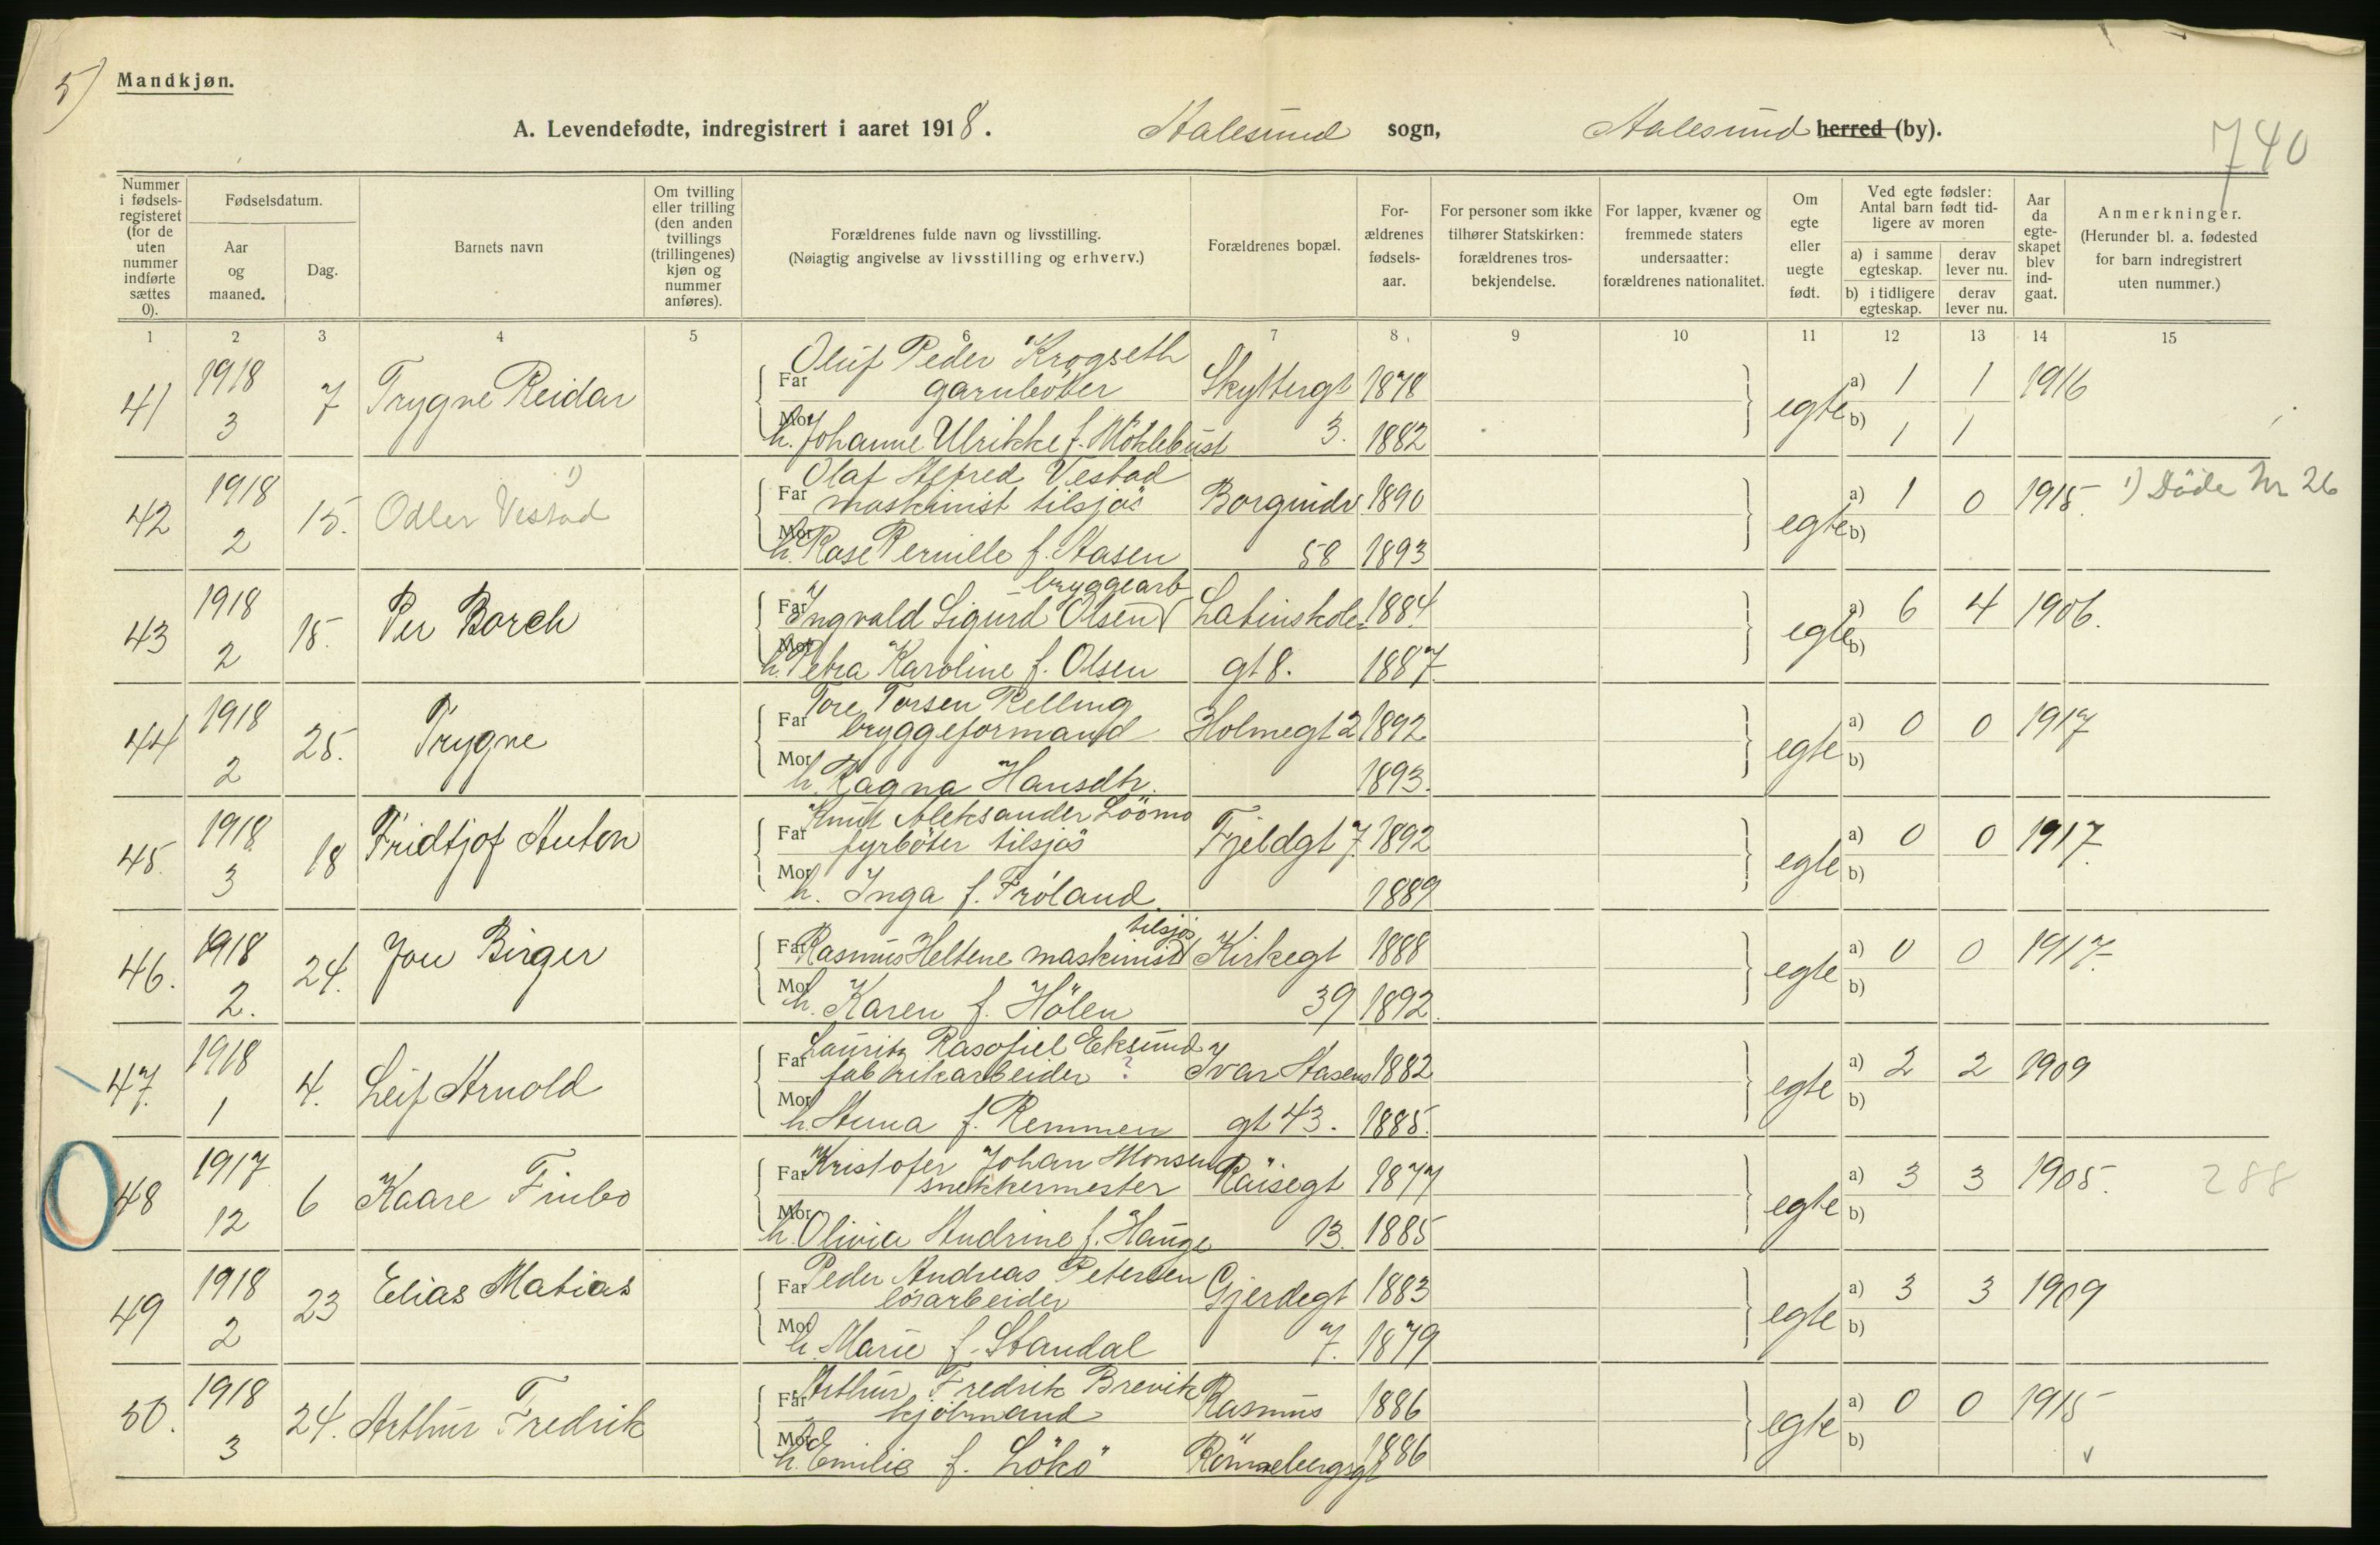 5)
Mandkjøn.
A. Levendefødte, indregistrert i aaret 1918. Aalesund sogn, Aalesund herred (by).
740
Nummer i fødsels-registeret (for de uten nummer indførte sættes 0).
Fødselsdatum.
Aar og maaned.
Dag.
Barnets navn
Om tvilling eller trilling (den anden tvillings (trillingenes) kjøn og nummer anføres).
Forældrenes fulde navn og livsstilling.
(Nøiagtig angivelse av livsstilling og erhverv.)
Forældrenes bopæl.
For-ældrenes fødsels-aar.
For personer som ikke tilhører Statskirken: forældrenes tros-bekjendelse.
For lapper, kvæner og fremmede staters undersaatter: forældrenes nationalitet.
Om egte eller uegte født.
Ved egte fødsler: Antal barn født tid-ligere av moren
a) i samme egteskap.
derav lever nu.
b) i tidligere egteskap.
derav lever nu.
Aar da egte-skapet blev ind-gaat.
Anmerkninger.
(Herunder bl. a. fødested for barn indregistrert uten nummer.)
1 2 3 4 5 6 7 8 9 10 11 12 13 14 15
Oluf Peder Krogseth
41 1918 7 Trygve Reidar Far garnbøter Skyttergt 1878 egte a) 1 1 1916
3 Mor h. Johanne Ulrikke f. Möklebust 3. 1882 b) 1 1
Olaf Alfred Vestad
42 1918 15. Odler Vestad 1) Far maskinist tilsjøs Borgundv 1890 egte a) 1 0 1915. 1) Döde Nr 26
2 Mor h. Rase Pernille f. Aasen 58 1893 b)
bryggearb
43 1918 15. Per Borch Far Ingvald Sigurd Olsen Latinskole- 1884 egte a) 6 4 1906.
2 Mor h. Petra Karoline f. Olsen gt 8. 1887 b)
Tore Torsen Relling
44 1918 25. Trygve Far bryggeformand Holmegt 2 1892 egte a) 0 0 1917
2 Mor h. Ragna Hansdtr. 1893. b)
Knut Aleksander Löömo
45. 1918 18 Fridtjof Anton Far fyrböter tilsjös Fjeldgt 7. 1892 egte a) 0 0 1917.
3 Mor h. Inga f. Fröland 1889 b)
tilsjøs
46. 1918 24. Jon Birger Far Rasmus Heltene maskinist Kirkegt 1888 egte a) 0 0 1917.
2. Mor h. Karen f. Hölen 39 1892. b)
Lauritz Rasofiel Eksund
47. 1918 4. Leif Arnold Far fabrikarbeider ? Ivar Aasens 1882 egte a) 2 2 1909
1 Mor h. Anna f. Remmen gt 43. 1885. b)
Kristofer Johan Monsen
48 1917 6 Kaare Finbo Far snekkermester Räisegt 1877 egte a) 3 3 1905. 288
12 Mor h. Olivia Andrine f. Hauge 13. 1885 b)
Peder Andreas Petersen
49 1918 23 Elias Matias Far løsarbeider Gjerdegt 1883 egte a) 3 3 1909
2 Mor h. Marie f. Standal 7. 1879 b)
Arthur Fredrik Brevik
50. 1918 24. Arthur Fredrik Far kjöbmand Rasmus 1886 egte a) 0 0 1915
3 Mor h. Emilie f. Lökö Rönnebergsgt 1886 b)